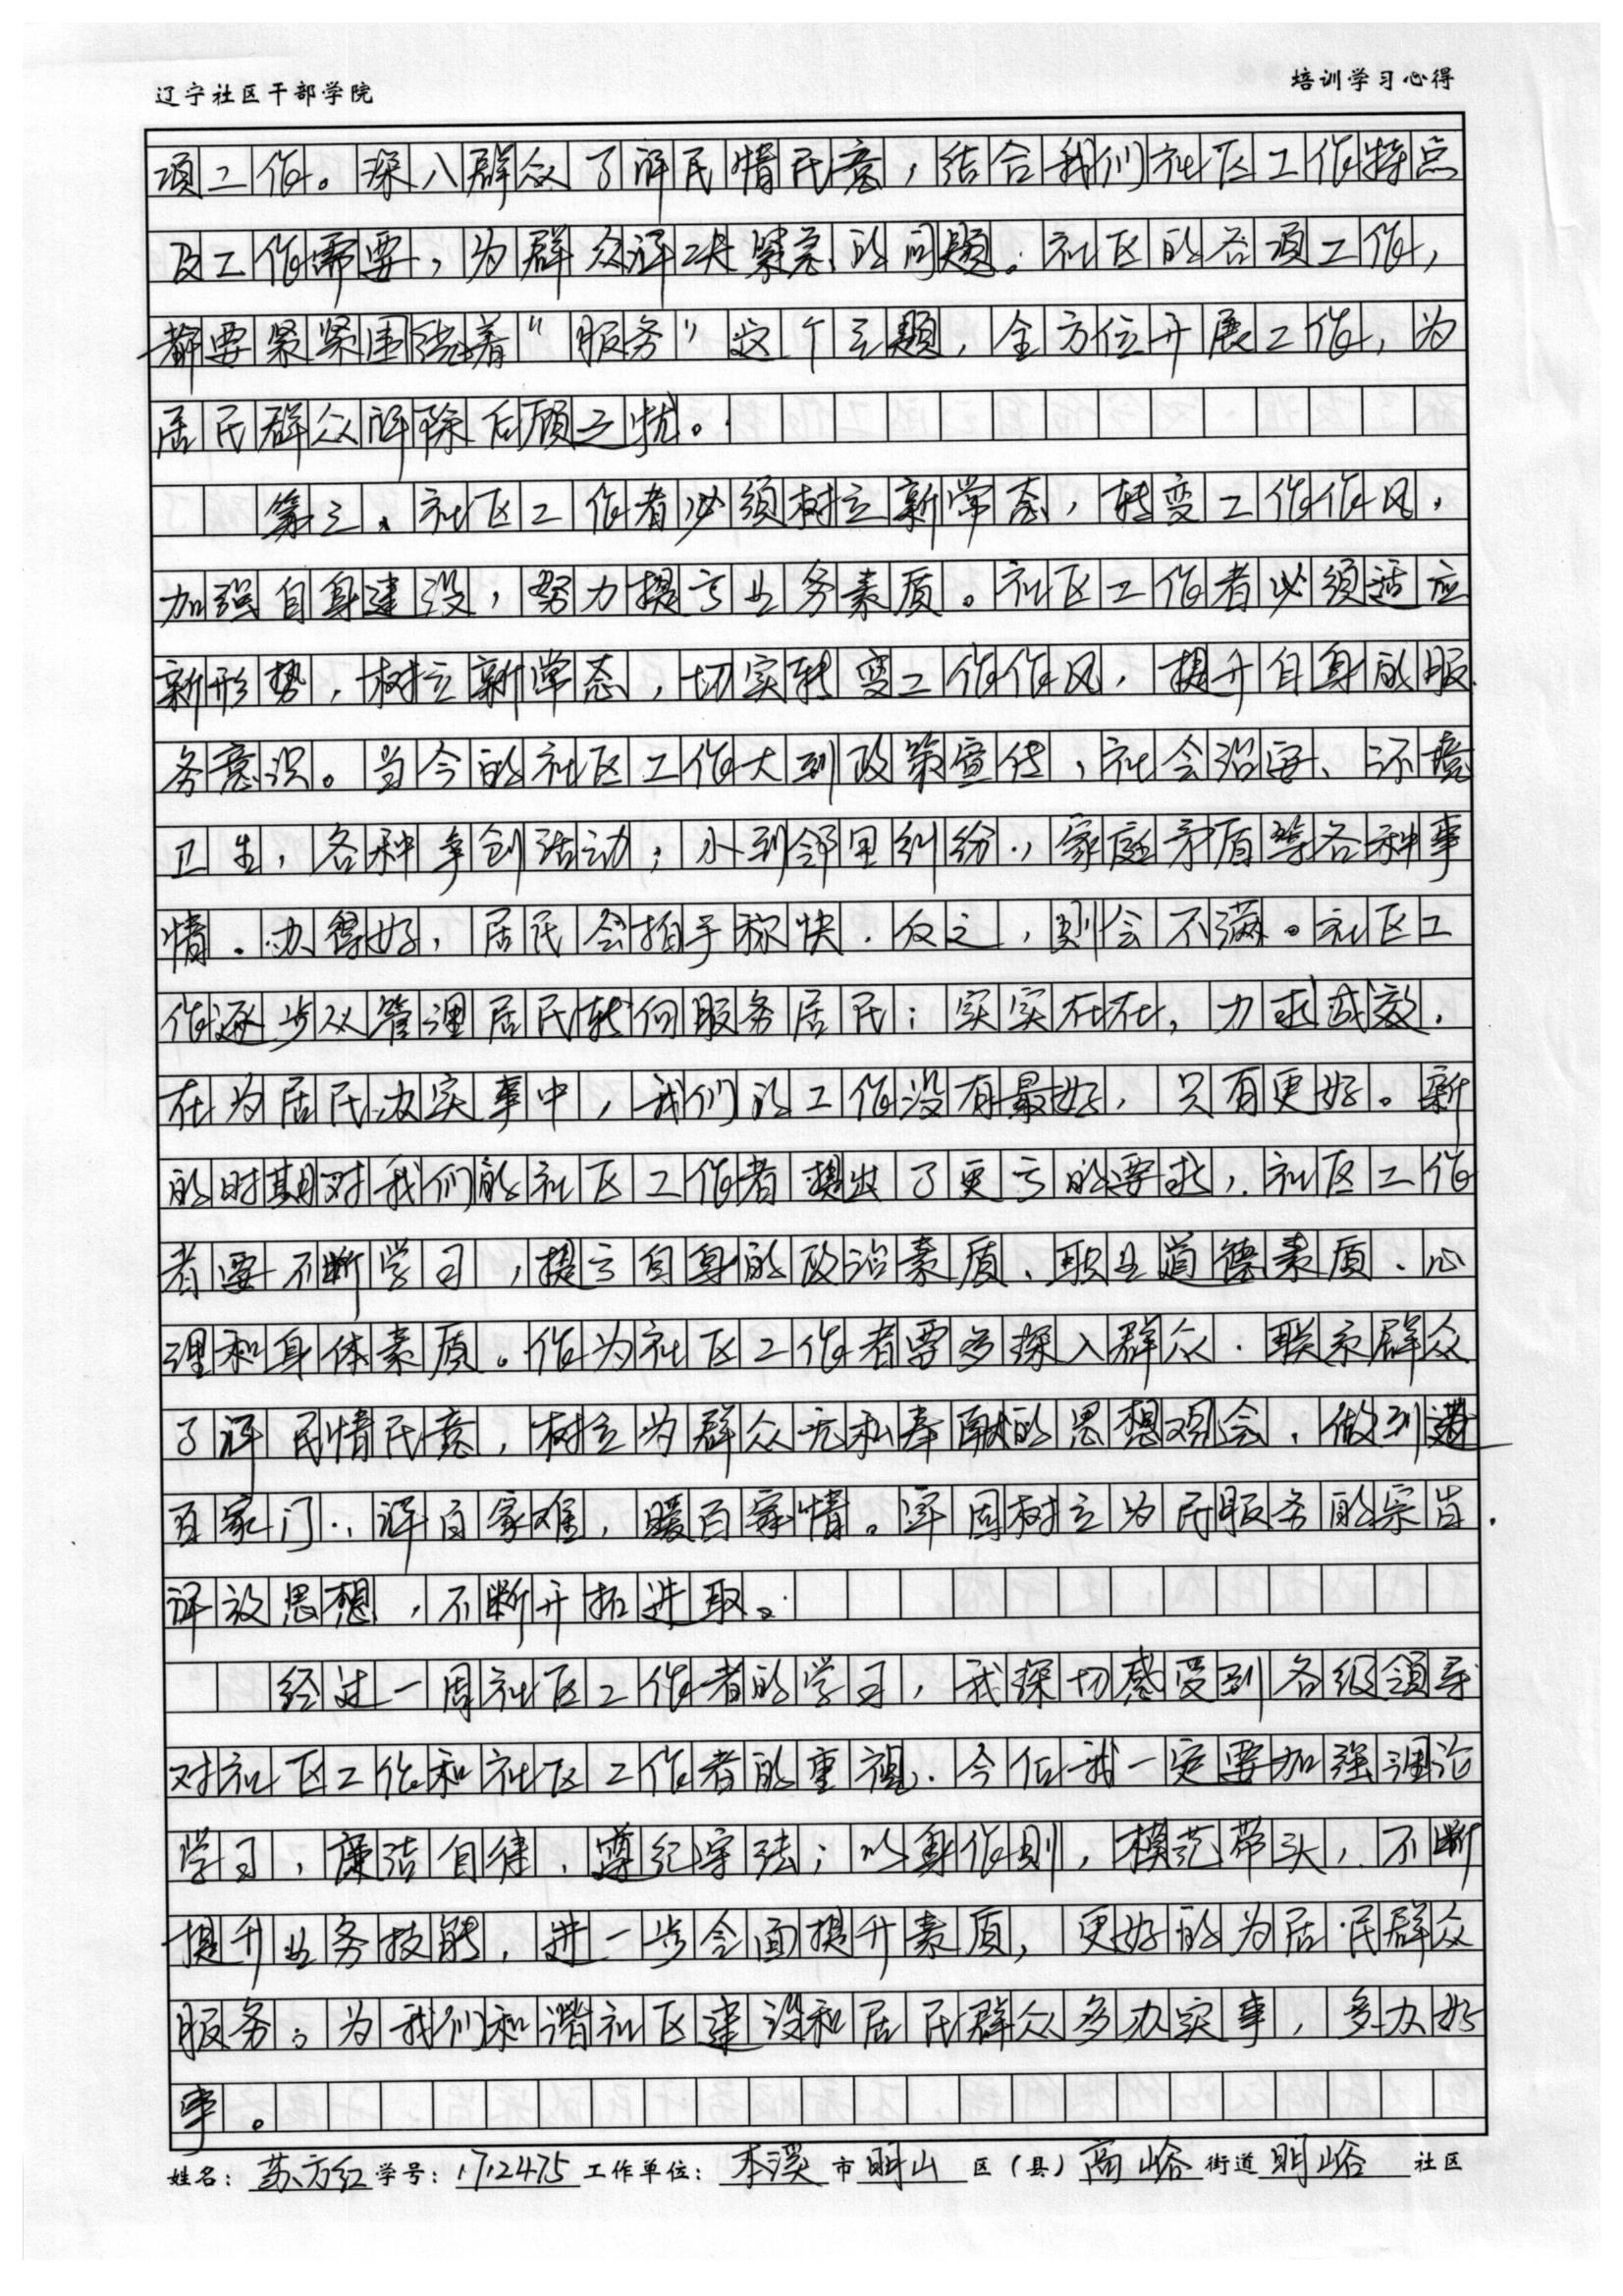 辽宁社区干部学院
培训学习心得
项工作。深入群众了解民情民意，结合我们社区工作特点
及工作需要，为群众解决紧急的问题。社区的各项工作，
都要紧紧围绕着“服务”这个主题，全方位开展工作，为
居民群众解除后顾之忧。
第三、社区工作者必须树立新常态，转变工作作风，
加强自身建设，努力提高业务素质。社区工作者必须适应
新形势，树立新常态，切实转变工作作风，提升自身的服
务意识。当今的社区工作大到政策宣传，社会治安、环境
卫生，各种争创活动；小到邻里纠纷，家庭矛盾等各种事
情。办得好，居民会拍手称快．反之，则会不满。社区工
作逐步从管理居民转向服务居民；实实在在，力求成效，
在为居民办实事中，我们的工作没有最好，只有更好。新
的时期对我们的社区工作者提出了更高的要求，社区工作
者要不断学习，提高自身的政治素质、职业道德素质、心
理和身体素质。作为社区工作者要多深入群众．联系群众
了解民情民意，树立为群众无私奉献的思想观念，做到进
百家门，解百家难，暖百家情。牢固树立为民服务的宗旨．
解放思想，不断开拓进取。
经过一周社区工作者的学习，我深切感受到各级领导
对社区工作和社区工作者的重视．今后我一定要加强理论
学习，廉洁自律、遵纪守法；以身作则，模范带头，不断
提升业务技能，进一步全面提升素质，更好的为居民群众
服务。为我们和谐社区建设和居民群众多办实事，多办好
事。
姓名：苏方红 学号：1712475 工作单位：本溪 市 明山 区（县）高峪 街道 明峪 社区